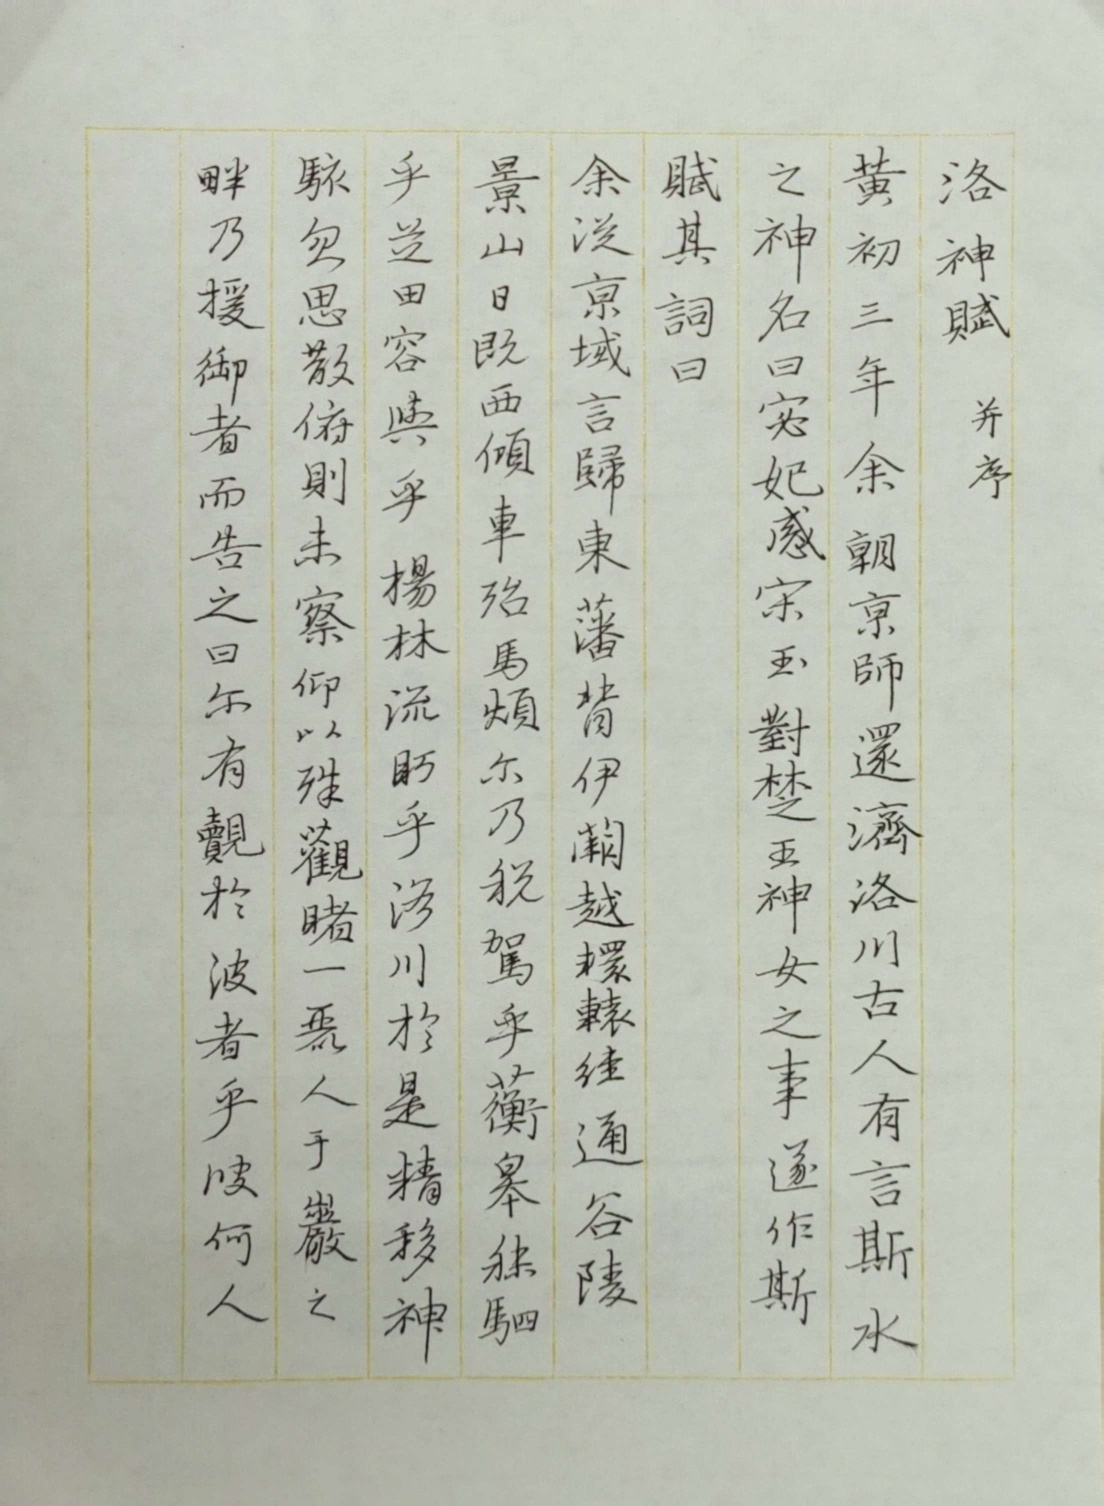 洛神賦 并序
黃初三年余朝京師還濟洛川古人有言斯水
之神名曰宓妃感宋玉對楚王神女之事遂作斯
賦其詞曰
余從京域言歸東藩背伊闕越轘轅經通谷陵
景山日既西傾車殆馬煩尔乃税駕乎蘅皋秣駟
乎芝田容與乎楊林流眄乎洛川於是精移神
駭忽思散俯則未察仰以殊觀睹一麗人于巖之
畔乃援御者而告之曰尔有覿於彼者乎彼何人